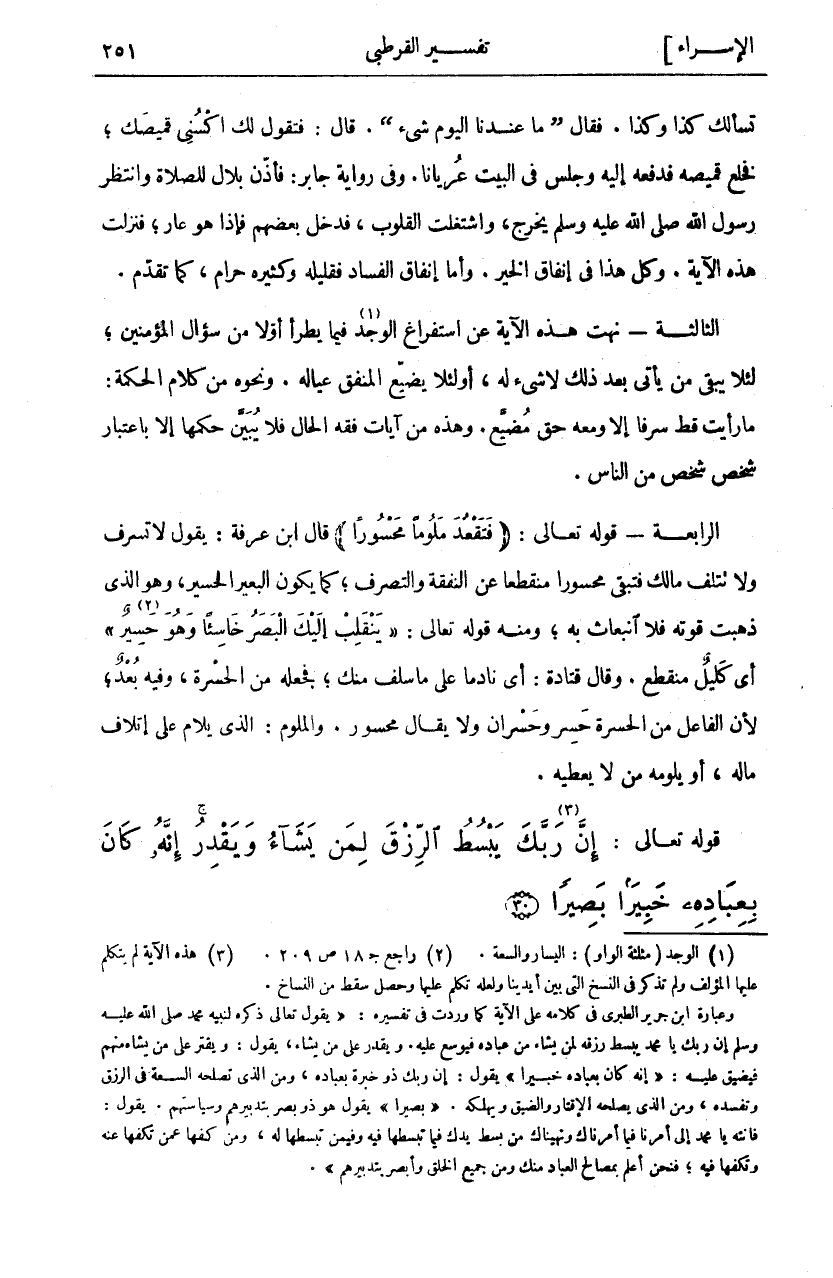 الإســراء]
تفســير القرطبى
٢٥١
تسألك كذا وكذا . فقال ” ما عنـدنا اليوم شىء “ . قال : فتقول لك اكْسُنِى قميصَك ؛
فخلع قميصه فدفعه إليه وجلس فى البيت عُريانا . وفى رواية جابر : فأذّن بلال للصلاة وانتظر
رسول الله صلى الله عليه وسلم يخرج ، واشتغلت القلوب ، فدخل بعضهم فإذا هو عار ؛ فنزلت
هذه الآية . وكل هذا فى إنفاق الخير . وأما إنفاق الفساد فقليله وكثيره حرام ، كما تقدّم .
الثالثـة – نهت هـذه الآية عن استفراغ الوجد (١) فيما يطرأ أوّلا من سؤال المؤمنين ؛
لئلا يبقى من يأتى بعد ذلك لا شىء له ، أو لئلا يضيّع المنفق عياله . ونحوه من كلام الحكمة :
ما رأيت قط سرفا إلا ومعه حق مُضَيَّع . وهذه من آيات فقه الحال فلا يُبَيَّن حكمها إلا باعتبار
شخص شخص من الناس .
الرابعـة – قوله تعـالى : ﴿ فَتَقْعُدَ مَلُومًا مَحْسُورًا ﴾ قال ابن عرفة : يقول لا تسرف
ولا تتلف مالك فتبقى محسورا منقطعا عن النفقة والتصرف ؛ كما يكون البعير الحسير ، وهو الذى
ذهبت قوته فلا انبعاث به ؛ ومنـه قوله تعالى : « يَنْقَلِبْ إِلَيْكَ الْبَصَرُ خَاسِئًا وَهُوَ حَسِيرٌ (٢) »
أى كَلِيلٌ منقطع . وقال قتادة : أى نادما على ما سلف منك ؛ فجعله من الحَسْرة ، وفيه بُعْدٌ ؛
لأن الفاعل من الحسرة حَسِر وحَسْران ولا يقـال محسور . والملوم : الذى يلام على إتلاف
ماله ، أو يلومه من لا يعطيه .
قوله تعـالى : إِنَّ (٣) رَبَّكَ يَبْسُطُ ٱلرِّزْقَ لِمَن يَشَآءُ وَيَقْدِرُ ۚ إِنَّهُۥ كَانَ
بِعِبَادِهِۦ خَبِيرًۢا بَصِيرًا ﴿٣٠﴾
(١) الوجد ( مثلثة الواو ) : اليسار والسعة . (٢) راجع جـ ١٨ ص ٢٠٩ . (٣) هذه الآية لم يتكلم
عليها المؤلف ولم تذكر فى النسخ التى بين أيدينا ولعله تكلم عليها وحصل سقط من النساخ .
وعبارة ابن جرير الطبرى فى كلامه على الآية كما وردت فى تفسيره : « يقول تعالى ذكره لنبيه محمد صلى الله عليـه
وسلم إن ربك يا محمد يبسط رزقه لمن يشاء من عباده فيوسع عليه . و يقدر على من يشاء ، يقول : و يقتر على من يشاء منهم
فيضيق عليـه : « إنه كان بعباده خبـيرا » يقول : إن ربك ذو خبرة بعباده ، ومن الذى تصلحه السـعة فى الرزق
وتفسده ، ومن الذى يصلحه الإقتار والضيق و يهلكه . « بصيرا » يقول هو ذو بصر بتدبيرهم وسياستهم . يقول :
فانته يا محمد إلى أمرنا فيما أمرناك ونهيناك من بسط يدك فيما تبسطها فيه وفيمن تبسطها له ، ومن كفها عمن تكفها عنه
وتكفها فيه ؛ فنحن أعلم بمصالح العباد منك ومن جميع الخلق وأبصر بتدبيرهم » .